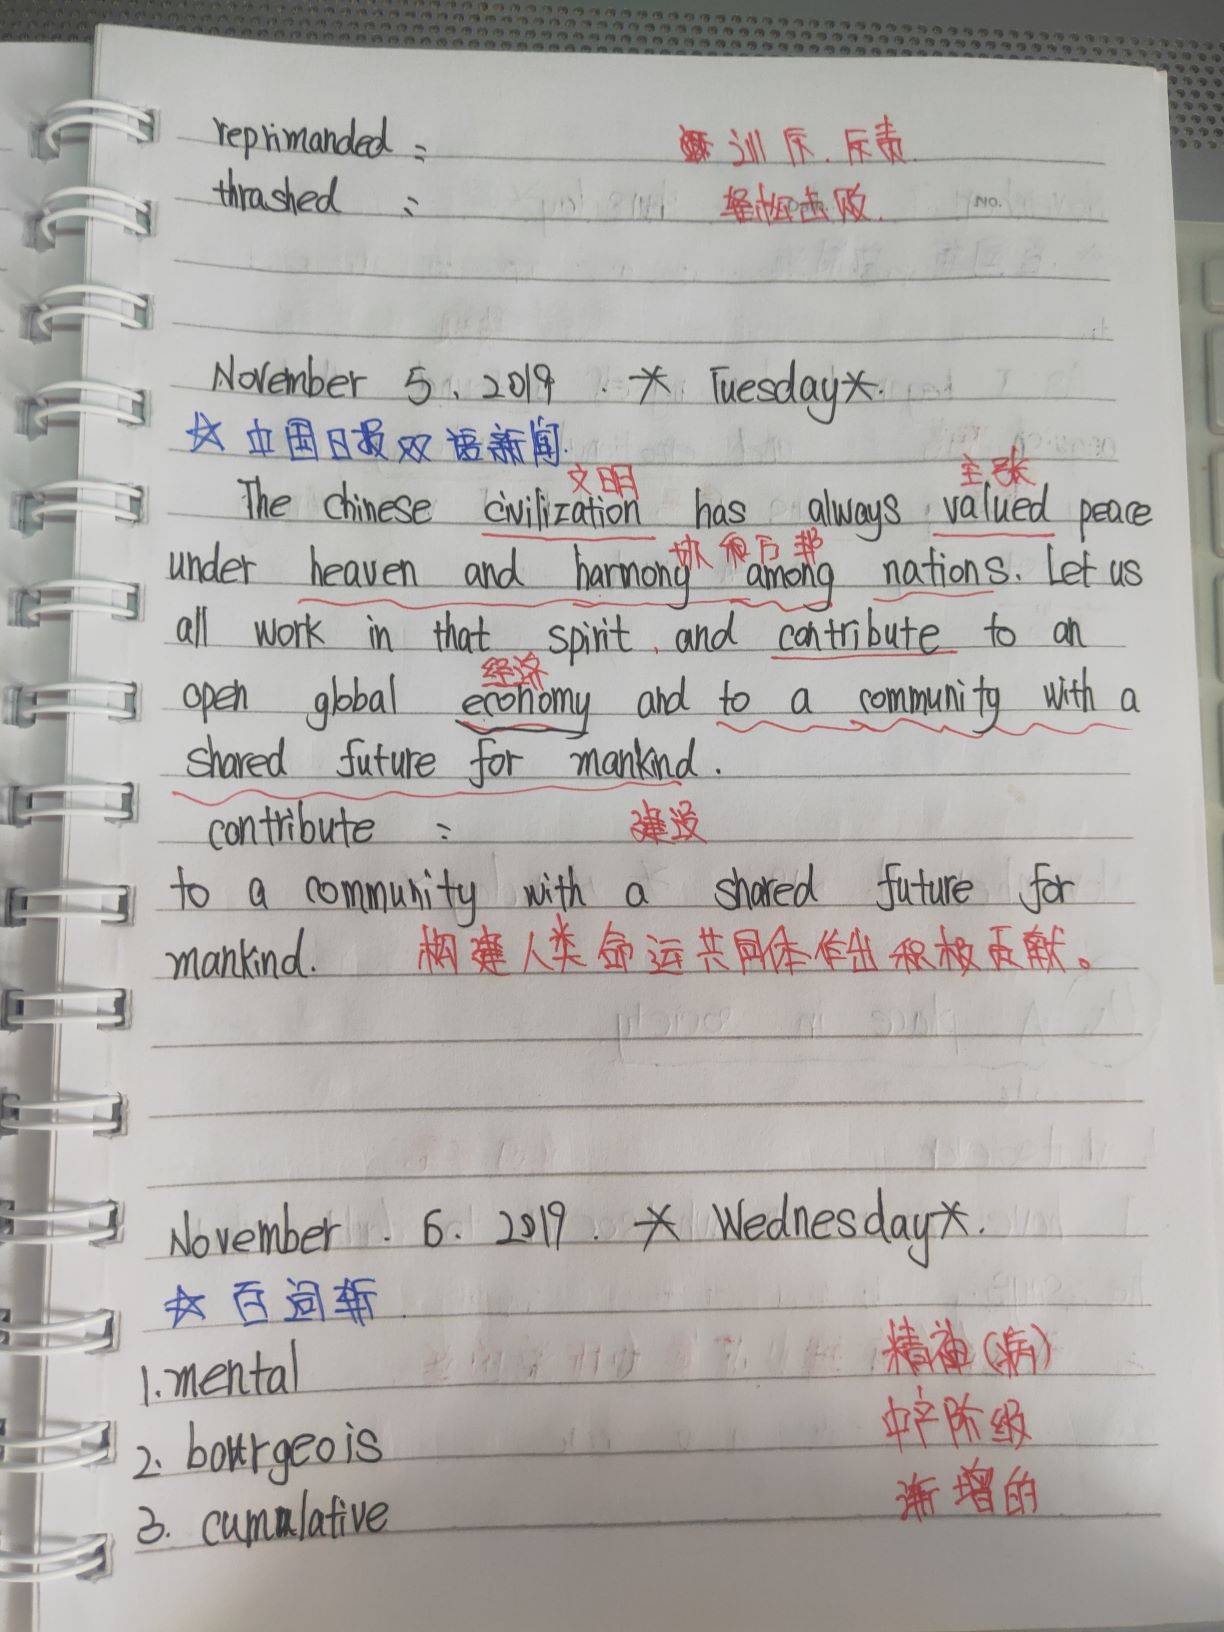 reprimanded : 训斥.斥责.
thrashed : 轻松击败.
November 5. 2019 . * Tuesday*.
☆ 中国日报双语新闻.
文明 主张
The Chinese civilization has always valued peace
协和万邦
under heaven and harmony among nations. Let us
all work in that spirit, and contribute to an
经济
open global economy and to a community with a
shared future for mankind.
contribute : 建设
to a community with a shared future for
mankind. 构建人类命运共同体作出积极贡献。
November . 6. 2019. * Wednesday*.
☆ 百词斩
1. mental 精神(病)
2. bourgeois 中产阶级
3. cumulative 渐增的